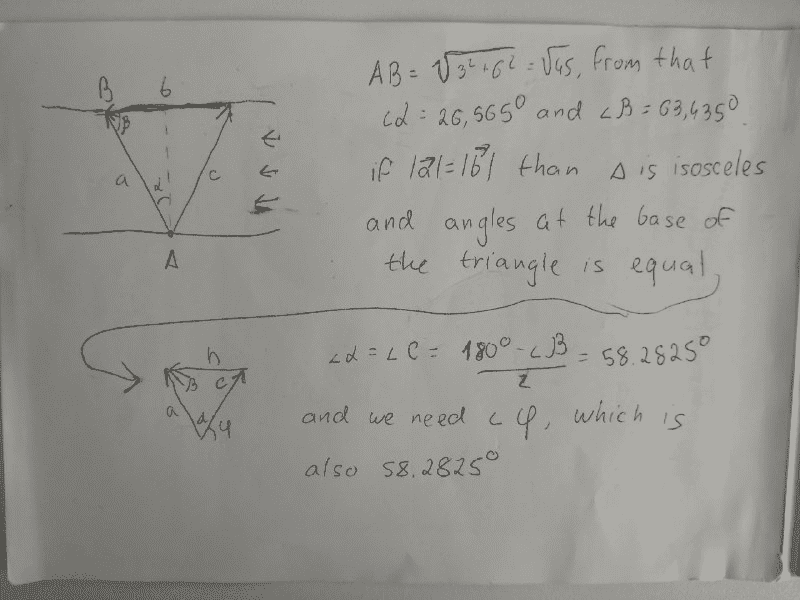 AB = √3²+6² = √45, from that
∠α = 26,565° and ∠β = 63,435°
if |a⃗|=|b⃗| than Δ is isosceles
and angles at the base of
the triangle is equal
B 6
β
a α c
A
∠α = ∠C = 180° - ∠β / 2 = 58.2825°
and we need ∠φ, which is
also 58.2825°
h
β c
a α φ